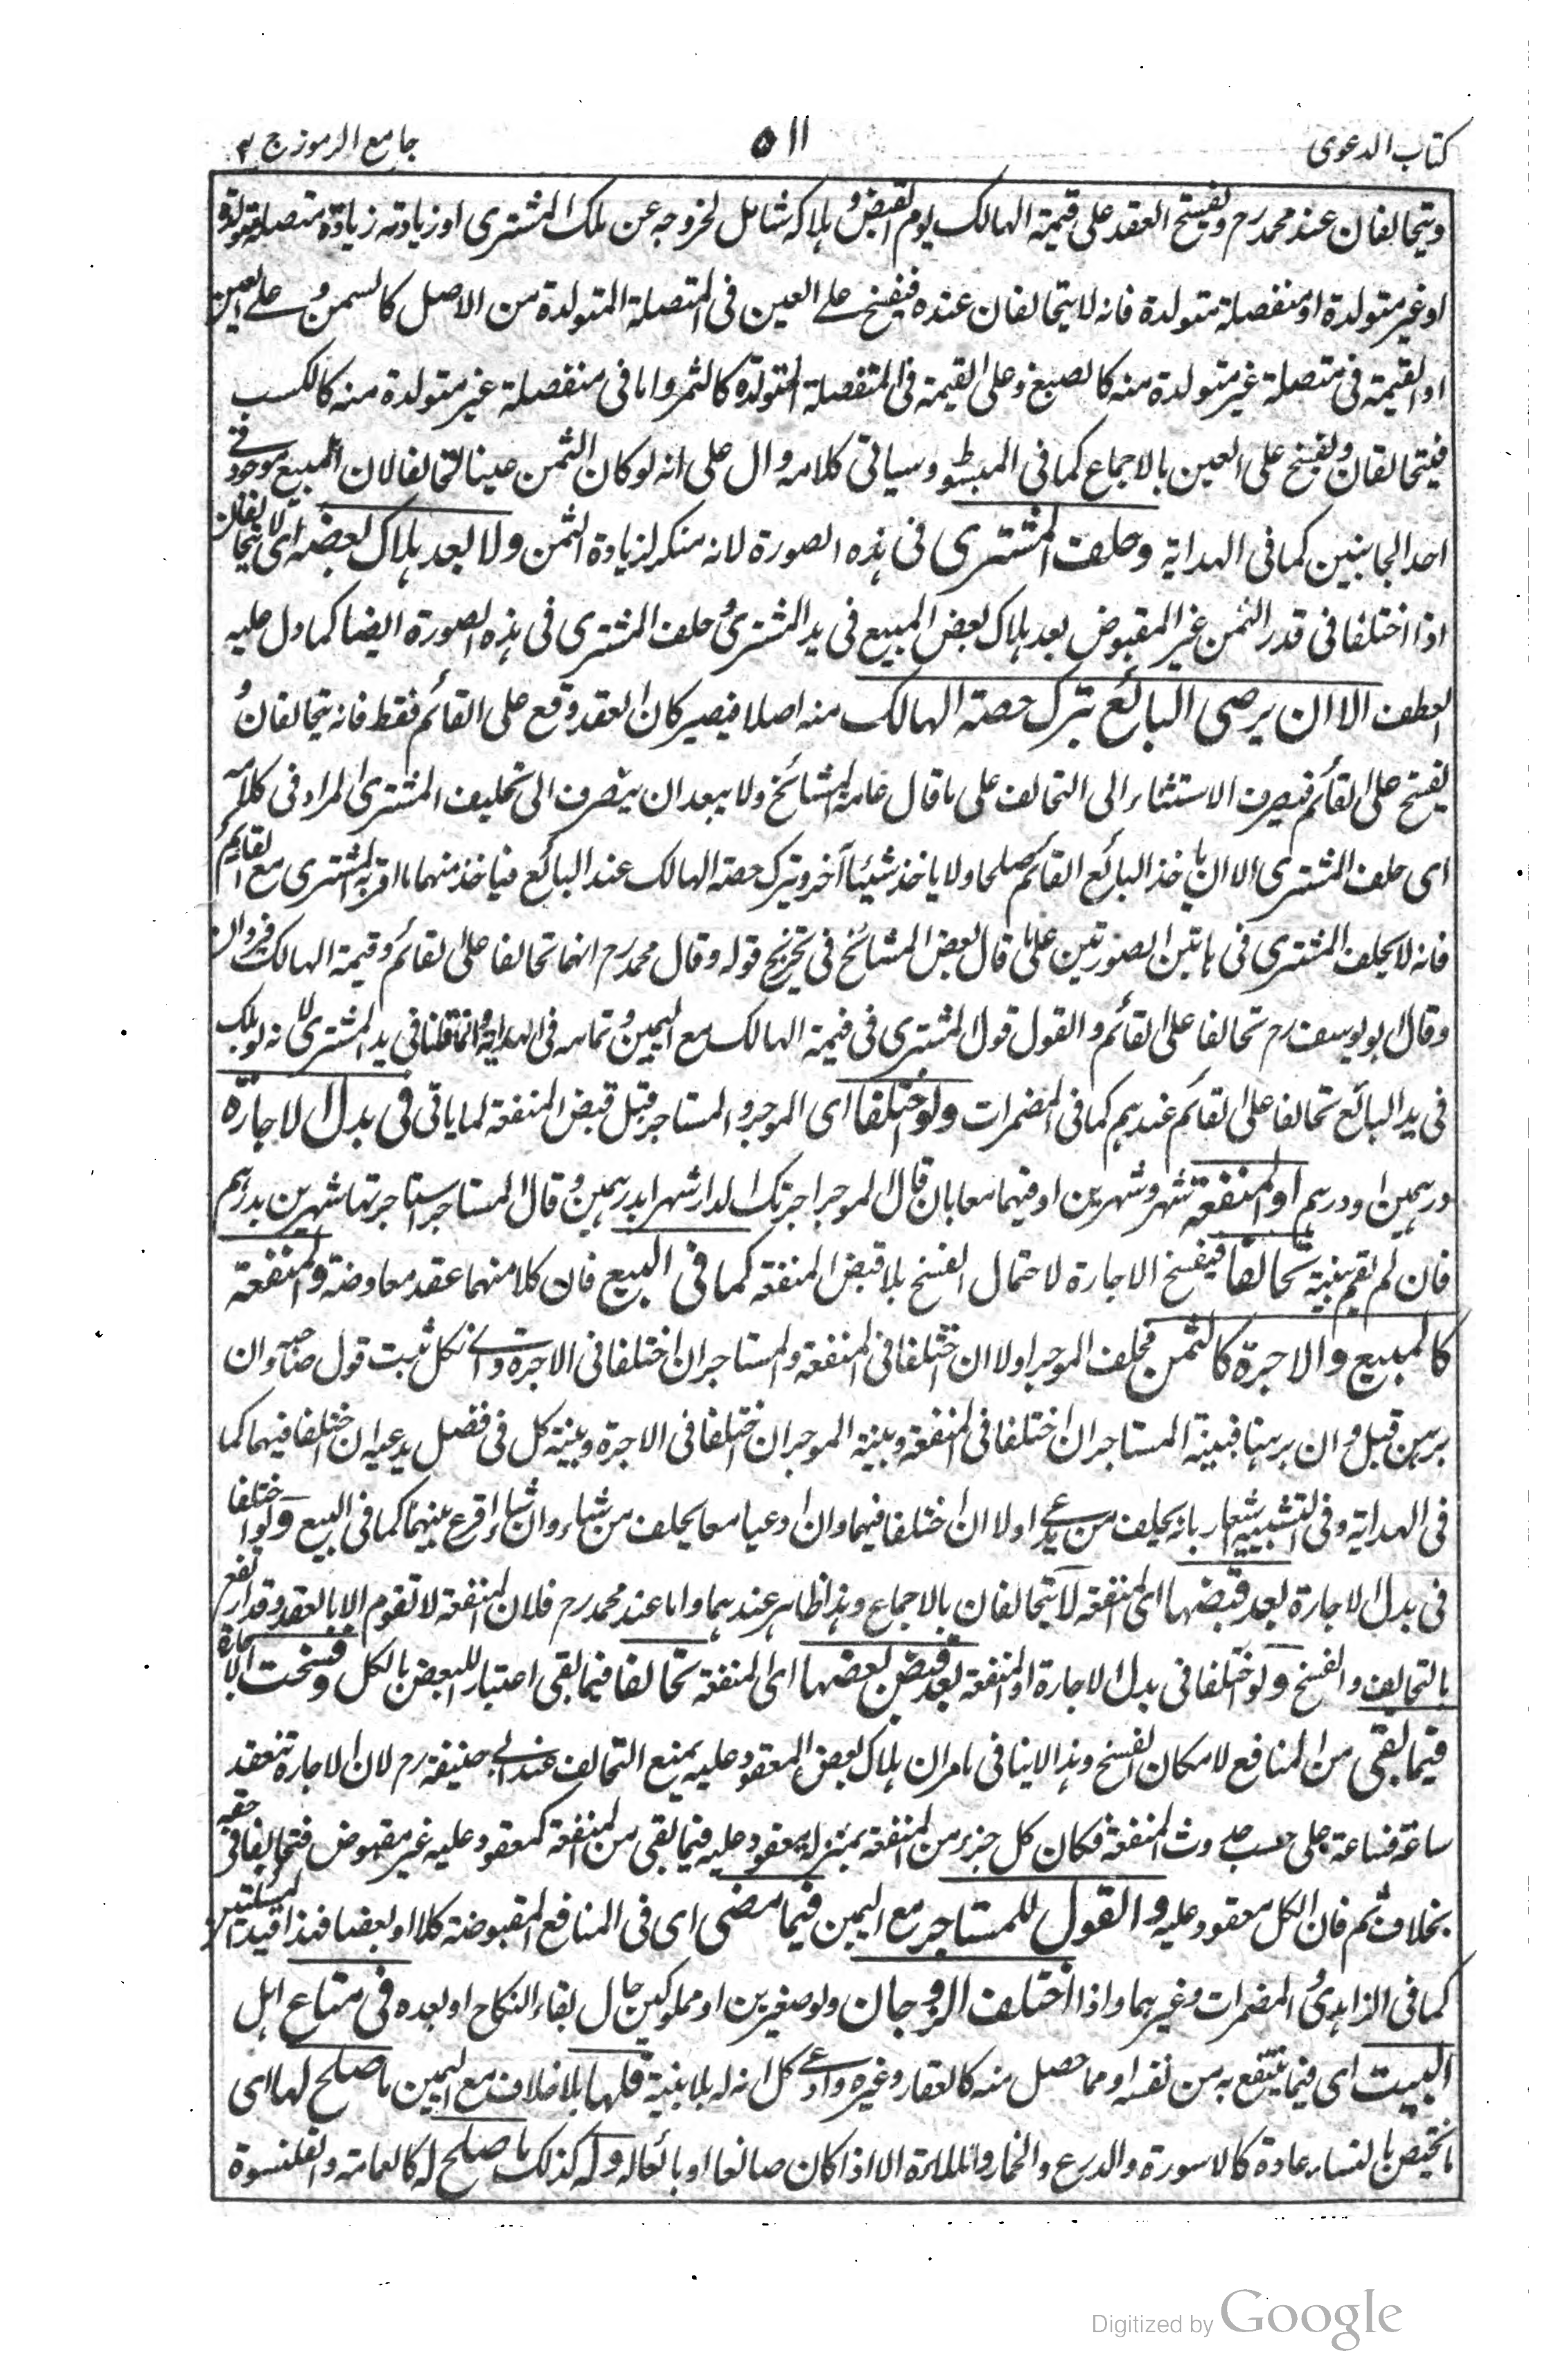 كتاب الدعوى
٥١١
جامع الرموز ج ٢
ويتحالفان عند محمد رح ويفسخ العقد على قيمة الهالك يوم القبض وهلاكه شامل لخروجه عن ملك المشترى او زيادته زيادة متصلة متولدة
او غير متولدة او منفصلة متولدة فانه لا يتحالفان عنده فيفسخ على العين فى المتصلة المتولدة من الاصل كالسمن وعلى العين
او القيمة فى متصلة غير متولدة منه كالصبغ وعلى القيمة فى المنفصلة المتولدة كالثمر واما فى منفصلة غير متولدة منه كالكسب
فيتحالفان ويفسخ على العين بالاجماع كما فى المبسوط وسياتى كلامه دال على انه لو كان الثمن عينا لتحالفا لان المبيع موجود فى
احد الجانبين كما فى الهداية وحلف المشترى فى هذه الصورة لانه منكر لزيادة الثمن ولا بعد هلاك بعضه اى لا يتحالفان
اذا اختلفا فى قدر الثمن غير المقبوض بعد هلاك بعض المبيع فى يد المشترى وحلف المشترى فى هذه الصورة ايضا كما دل عليه
العطف الا ان يرضى البائع بترك حصة الهالك منه اصلا فيصير كان العقد وقع على القائم فقط فانه يتحالفان و
يفسخ على القائم فيصرف الاستثناء الى التحالف على ما قال عامة المشائخ ولا يبعد ان يتصرف الى تحليف المشترى المراد فى كلامه
اى حلف المشترى الا ان ياخذ البائع القائم صلحا ولا ياخذ شيئا آخر وترك حصة الهالك عند البائع فياخذ منهما ما اقر به المشترى مع القائم
فانه لا يحلف المشترى فى هاتين الصورتين على ما قال بعض المشائخ فى تخريج قوله وقال محمد رح انهما تحالفا على القائم وقيمة الهالك فيردان
وقال ابو يوسف رح تحالفا على القائم والقول قول المشترى فى قيمة الهالك مع اليمين وتمامه فى الهداية وانما قلنا فى يد المشترى لانه لو هلك
فى يد البائع تحالفا على القائم عندهم كما فى المضمرات ولو اختلفا اى الموجر والمستاجر قبل قبض المنفعة لما ياتى فى بدل الاجارة
درهمين او درهم او المنفعة شهر وشهرين او فيهما معا بان قال الموجر اجرتك الدار شهرا بدرهمين وقال المستاجر استاجرتها شهرين بدرهم
فان لم تقم بينة تحالفا فيفسخ الاجارة لاحتمال الفسخ بلا قبض المنفعة كما فى البيع فان كلا منهما عقد معاوضة والمنفعة
كالمبيع والاجرة كالثمن فحلف الموجر اولا ان اختلفا فى المنفعة والمستاجر ان اختلفا فى الاجرة واى نكل ثبت قول صاحبه وان
برهن قبل وان برهنا فبينة المستاجر ان اختلفا فى المنفعة وبينة الموجر ان اختلفا فى الاجرة وبينة كل فى فضل يدعيه ان اختلفا فيهما كما
فى الهداية وفى التشبيه اشعار بانه يحلف من يدعى اولا ان اختلفا فيهما وان ادعيا معا يحلف من شاء وان شاء اقرع بينهما كما فى البيع ولو اختلفا
فى بدل الاجارة بعد قبضها اى المنفعة لا يتحالفان بالاجماع وهذا ظاهر عندهما واما عند محمد رح فلان المنفعة لا تقوم الا بالعقد وقد ارتفع
بالتحالف والفسخ ولو اختلفا فى بدل الاجارة او المنفعة بعد قبض بعضها اى المنفعة تحالفا فيما بقى اعتبار للبعض بالكل وفسخت الاجارة
فيما بقى من المنافع لامكان الفسخ وهذا لا ينافى ما مر ان هلاك بعض المعقود عليه يمنع التحالف عند ابى حنيفة رح لان الاجارة تنعقد
ساعة فساعة على حسب حدوث المنفعة فكان كل جزء من المنفعة بمنزلة معقود عليه فيما بقى من المنفعة كمعقود عليه غير مقبوض فتحالفا فى حقه
بخلاف ثم فان الكل معقود عليه والقول للمستاجر مع اليمين فيما مضى اى فى المنافع المقبوضة كلا او بعضا فهذا قيد المسئلتين
كما فى الزاهدى والمضمرات وغيرهما واذا اختلف الزوجان ولو صغيرين او مملوكين حال بقاء النكاح او بعده فى متاع اهل
البيت اى فيما ينتفع به من نفسه او مما حصل منه كالعقار وغيره وادعى كل انه له بلا بينة فلها بلا خلاف مع اليمين ما صلح لها اى
ما يختص بالنساء عادة كالاسورة والدرع والخمار والملاءة الا اذا كان صانعا او بائعا له وله كذلك ما صلح له كالعمامة والقلنسوة
Digitized by Google